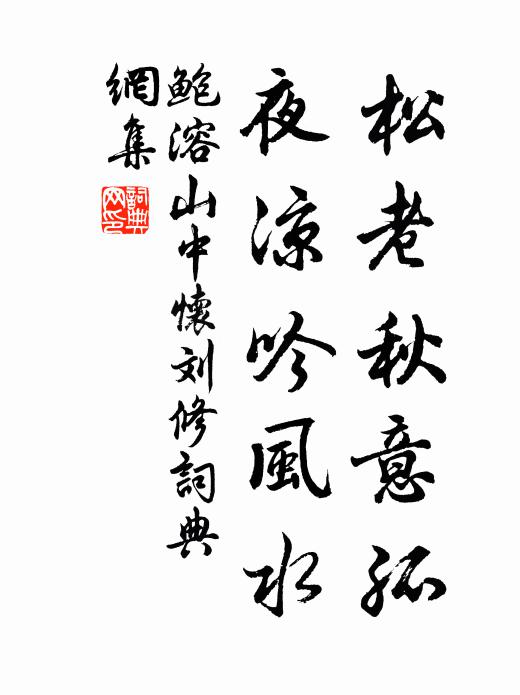 松老秋意孤
夜涼吟風水
鲍溶山中懷刘修詞典
網集
詞典网印